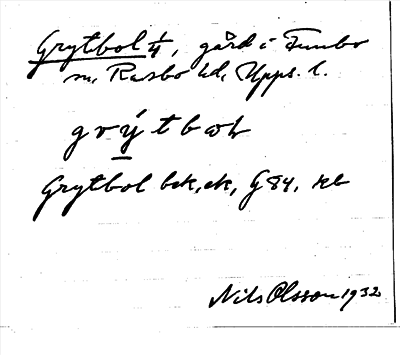 Grytbol 1/4, gård i Funbo
sn, Rasbo hd, Upps. l.
grýtbωl
Grytbol bek, ek, G 84, kb
Nils Olsson 1932